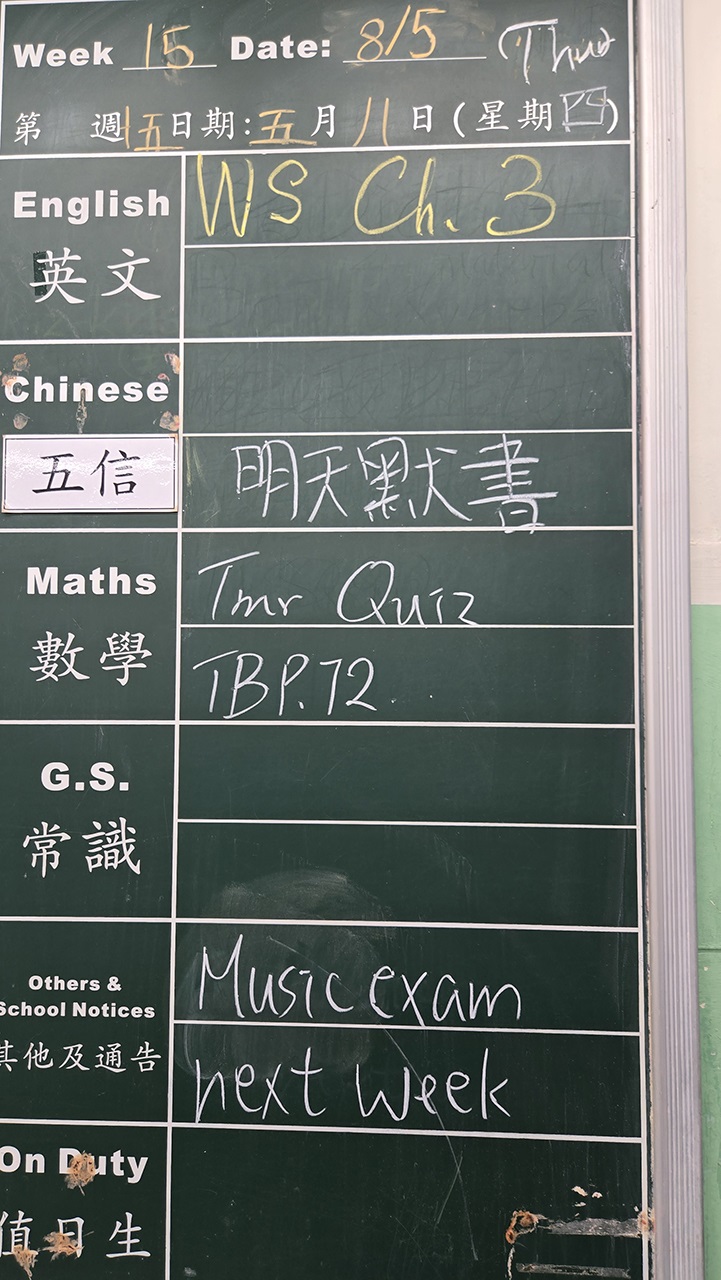 Week 15 Date: 8/5 (Thur
第 十五 週日期:五月八日(星期四)
English WS Ch. 3
英文
Chinese
五信 明天默書
Maths Tmr Quiz
數學 TBP.72
G.S.
常識
Others & Music exam
School Notices
其他及通告 next week
On Duty
值日生